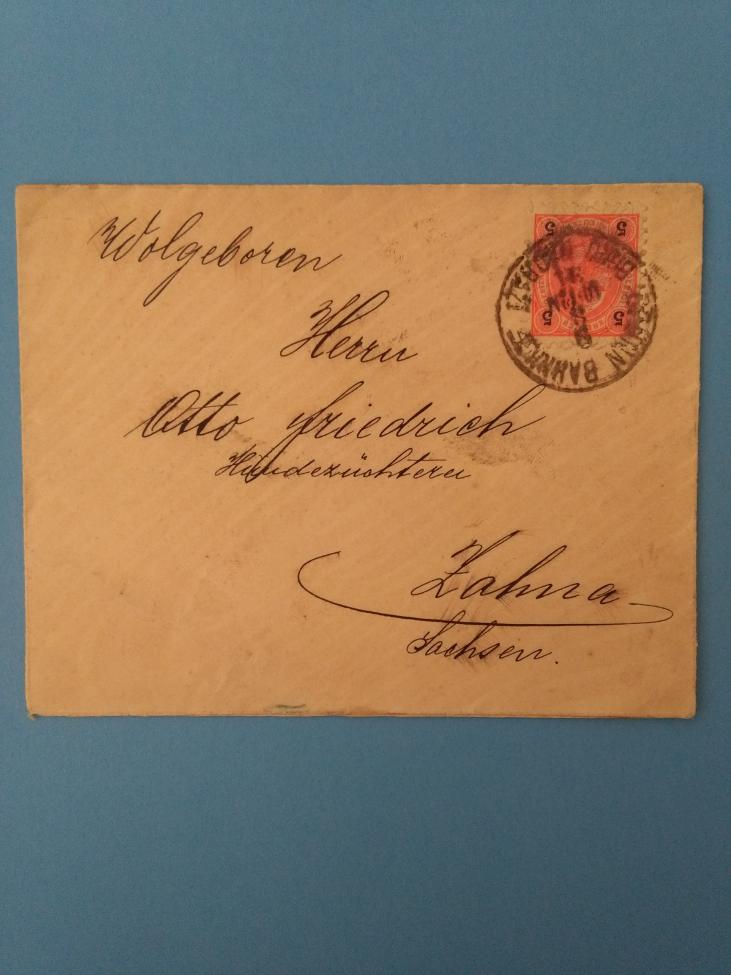 Wolgeboren
Herrn
Otto Friedrich
Hundezüchterei
Zahna
Sachsen.
5 5
5 5
BAHNHOF